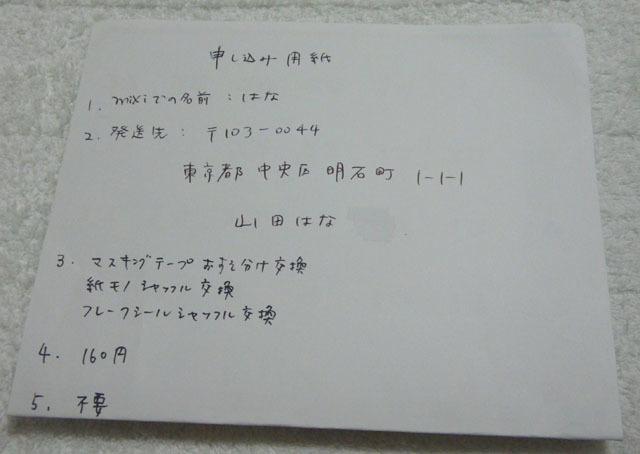 申し込み用紙
1. mixiでの名前：はな
2. 発送先：〒103-0044
東京都 中央区 明石町 1-1-1
山田はな
3. マスキングテープおすそ分け交換
紙モノ シャッフル 交換
フレークシール シャッフル 交換
4. 160円
5. 不要